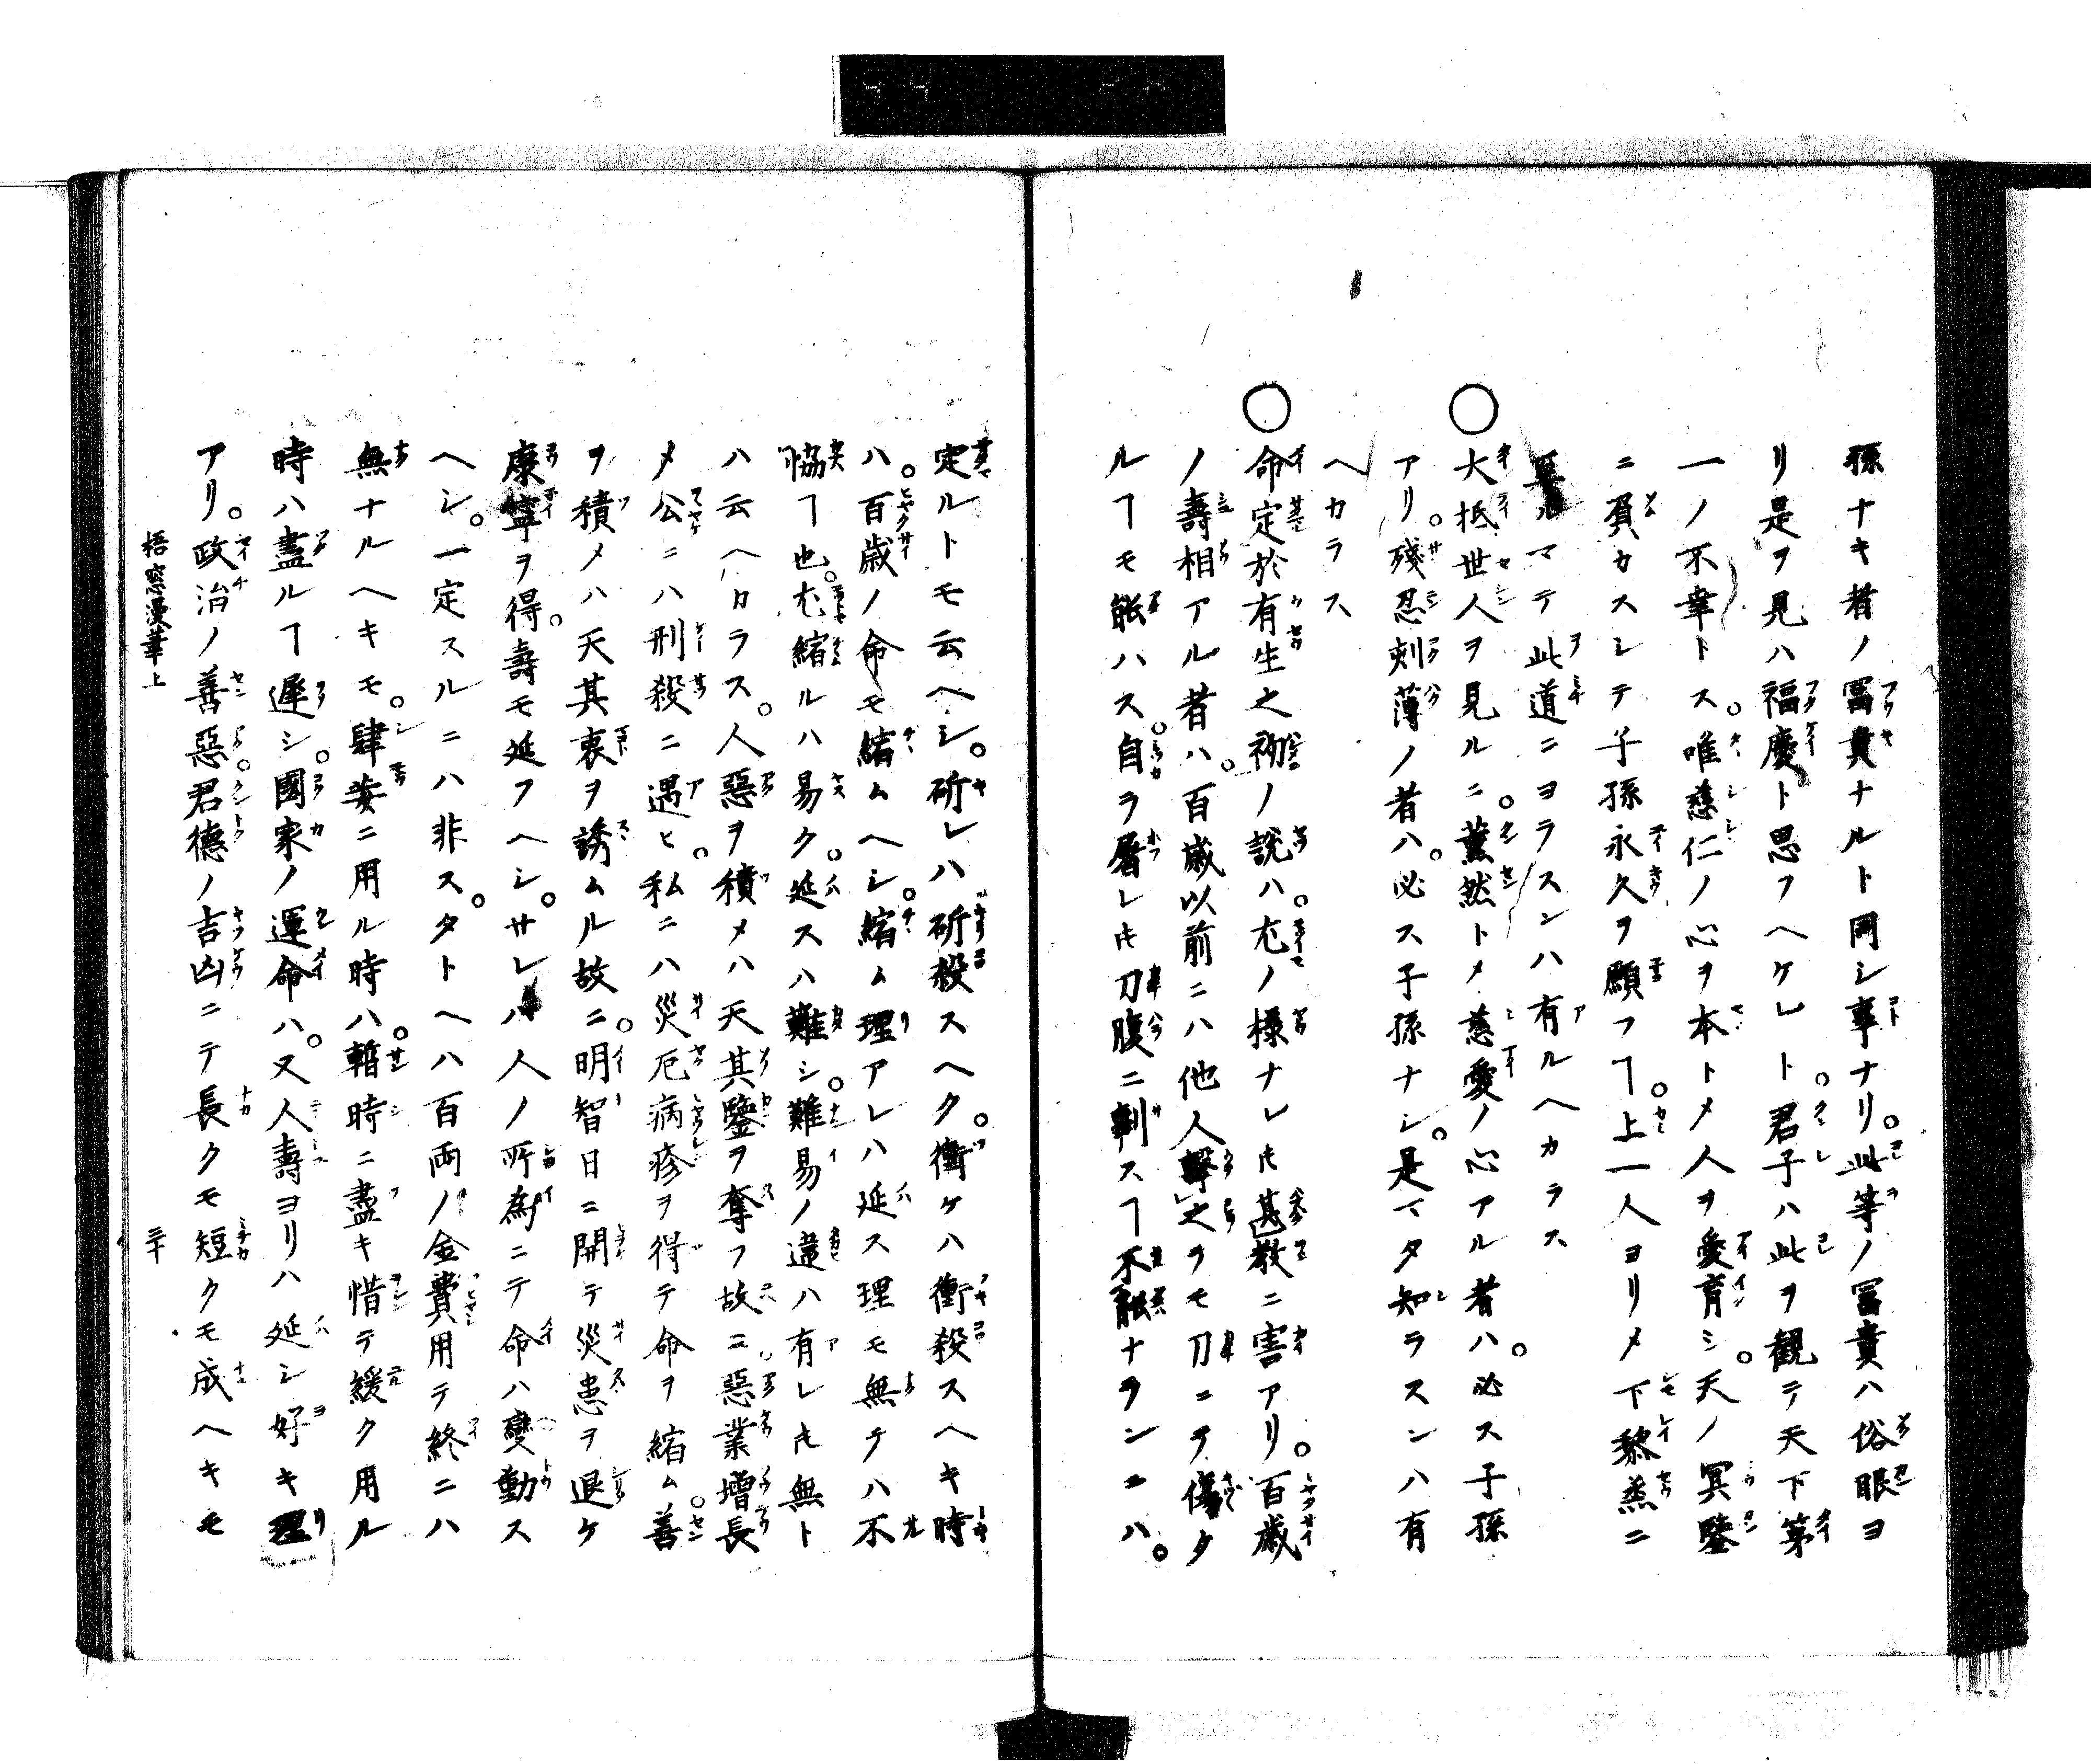 孫ナキ者ノ冨貴ナルト同シ事ナリ。此等ノ冨貴ハ俗眼ヨ
リ是ヲ見ハ福慶ト思フヘケレト。君子ハ此ヲ観テ天下第
一ノ不幸トス。唯慈仁ノ心ヲ本トメ人ヲ愛育シ。天ノ冥鑒
ニ負カスシテ子孫永久ヲ願フヿ。上一人ヨリメ下黎烝ニ
至ルマテ此道ニヨラスンハ有ルヘカラス
〇大抵世人ヲ見ルニ。薫然トメ慈愛ノ心アル者ハ。必ス子孫
アリ。殘忍刻薄ノ者ハ。必ス子孫ナシ。是マタ知ラスンハ有
ヘカラス
〇命定於有生之初ノ說ハ。尤ノ様ナレ𪜈甚教ニ害アリ。百歳
ノ壽相アル者ハ。百歳以前ニハ他人擊之ヲモ刀ニヲ傷タ
ルヿモ能ハス。自ヲ屠レ𪜈刀腹ニ剚スヿ不能ナランニハ。
定ルトモ云ヘシ。斫レハ斫殺スヘク。衝ケハ衝殺スヘキ時
ハ。百歳ノ命モ縮ムヘシ。縮ム理アレハ延ス理モ無テハ不
恊ヿ也。尤縮ルハ易ク。延スハ難シ。難易ノ違ハ有レ𪜈無ト
ハ云ヘカラス。人惡ヲ積メハ天其鑒ヲ奪フ故ニ惡業增長
メ公ニハ刑殺ニ遇ヒ。私ニハ災厄病疹ヲ得テ命ヲ縮ム。善
ヲ積メハ天其衷ヲ誘ムル故ニ。明智日ニ開テ災患ヲ退ケ
康寧ヲ得。壽モ延フヘシ。サレハ人ノ所為ニテ命ハ變動ス
ヘシ。一定スルニハ非ス。タトヘハ百兩ノ金費用テ終ニハ
無ナルヘキモ。肆妄ニ用ル時ハ。暫時ニ盡キ惜テ緩ク用ル
時ハ盡ルヿ遲シ。國家ノ運命ハ。又人壽ヨリハ延シ好キ理
アリ。政治ノ善惡。君德ノ吉凶ニテ長クモ短クモ成ヘキモ
梧窓漫筆上 三十